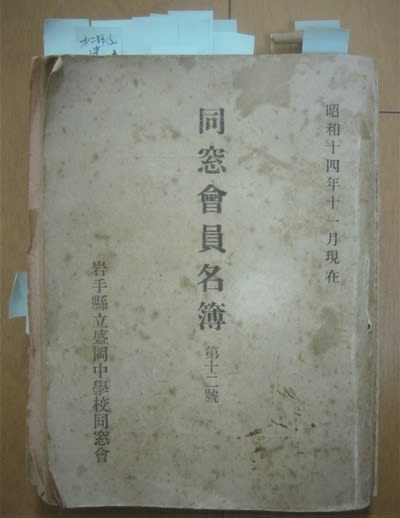 昭和十四年十一月現在
同窓會員名簿 第十二號
岩手縣立盛岡中學校同窓會